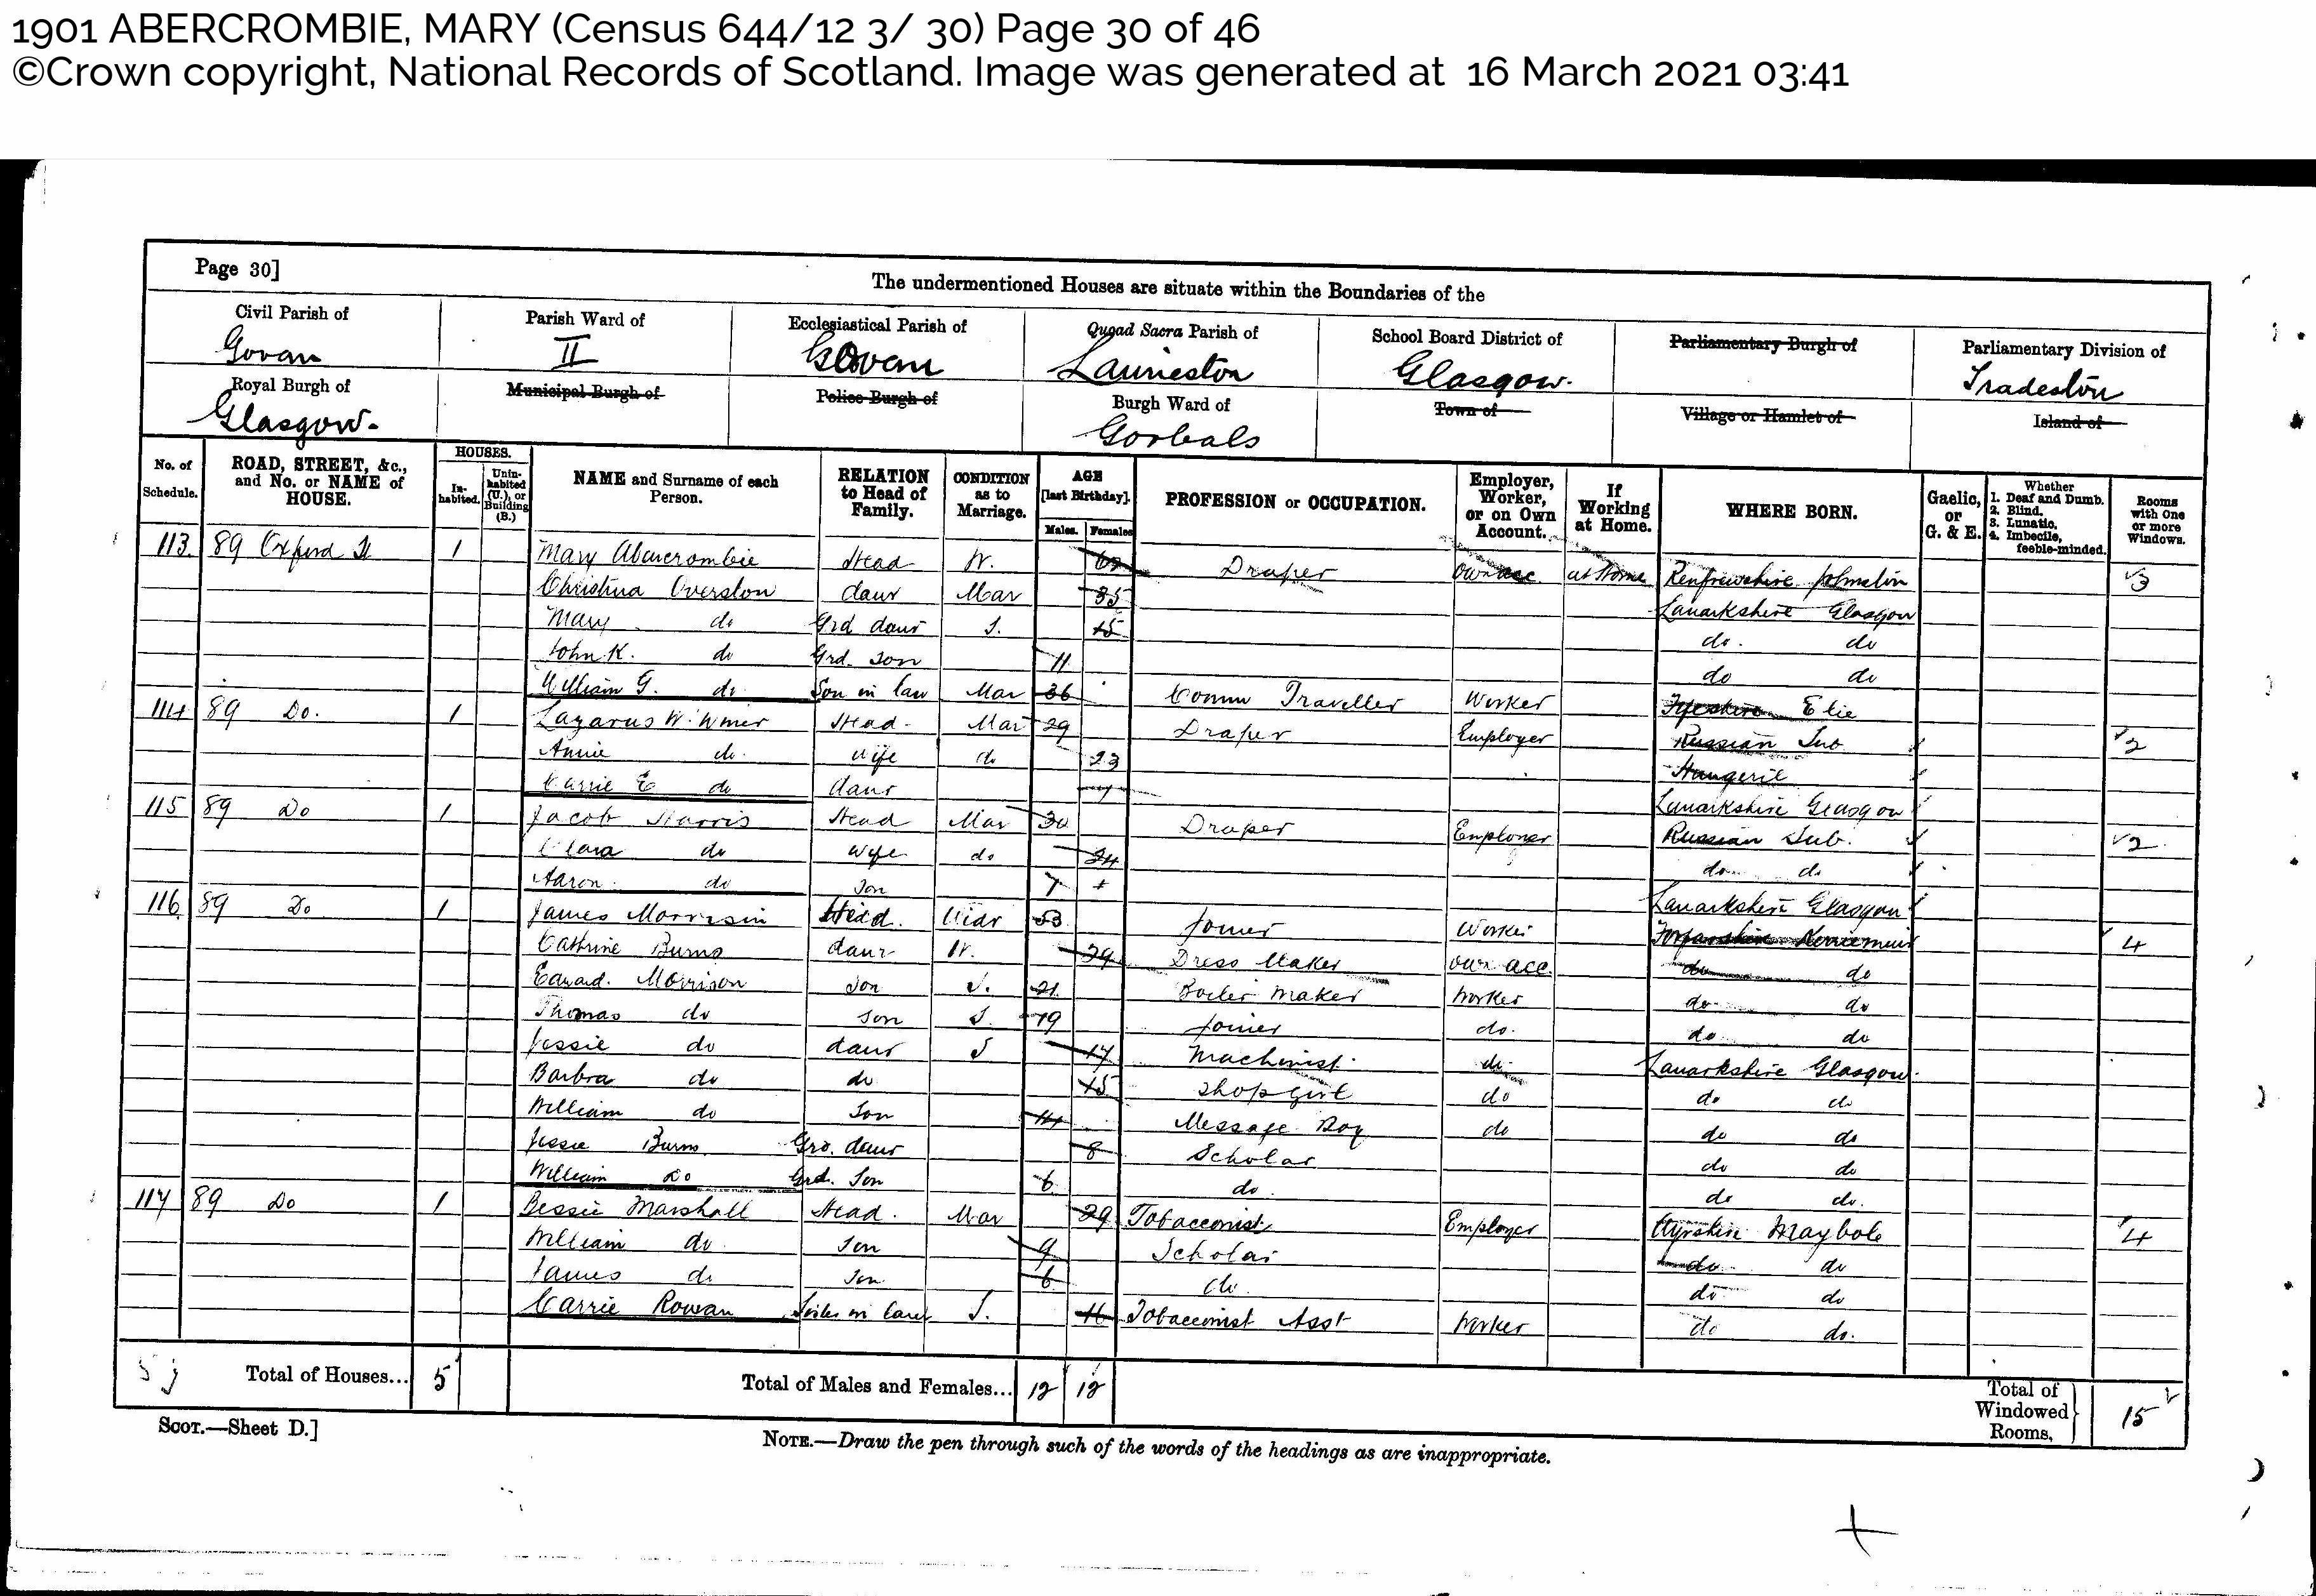 1901 ABERCROMBIE, MARY (Census 644/12 3/ 30) Page 30 of 46
©Crown copyright, National Records of Scotland. Image was generated at 16 March 2021 03:41
Page 30]
The undermentioned Houses are situate within the Boundaries of the
Civil Parish of Parish Ward of Ecclesiastical Parish of Quoad Sacra Parish of School Board District of Parliamentary Burgh of Parliamentary Division of
Govan II Govan Laurieston Glasgow. Tradeston
Royal Burgh of Municipal Burgh of Police Burgh of Burgh Ward of Town of Village or Hamlet of Island of
Glasgow. Gorbals
No. of Schedule. ROAD, STREET, &c., and No. or NAME of HOUSE. HOUSES. Inhabited. Uninhabited (U.), or Building (B.) NAME and Surname of each Person. RELATION to Head of Family. CONDITION as to Marriage. AGE [last Birthday]. Males. Females PROFESSION or OCCUPATION. Employer, Worker, or on Own Account. If Working at Home. WHERE BORN. Gaelic, or G. & E. Whether 1. Deaf and Dumb. 2. Blind. 3. Lunatic. 4. Imbecile, feeble-minded. Rooms with One or more Windows.
113 89 Oxford St 1 Mary Abercrombie Head W. Draper Own acc. at Home Renfrewshire Johnston 3
Christina Overston daur Mar 35 Lanarkshire Glasgow
Mary do Grd daur S. 15 do. do
John K. do Grd. Son 11 do do
William G. do Son in law Mar 36 Comm Traveller Worker Fifeshire Elie
114 89 Do. 1 Lazarus Head Mar 29 Draper Employer Russian Sub 2
Annie do wife do 23
Carrie E do daur Lanarkshire Glasgow
115 89 Do 1 Jacob Harris Head Mar 30 Draper Employer Russian Sub. 2
Clara do wife do 24 do do
Aaron do Son Lanarkshire Glasgow
116 89 Do 1 James Morrison Head. Widr 53 Joiner Worker Forfarshire Kirriemuir 4
Cathrine Burns daur W. 29 Dress Maker own acc. do do
Edward. Morrison Son S. 21 Boiler Maker Worker do do
Thomas do Son S. 19 Joiner do. do do
Jessie do daur S 17 Machinist. do Lanarkshire Glasgow.
Barbra do do 15 Shop Girl do do do
William do Son 14 Message Boy do do do
Jessie Burns Grd. daur 8 Scholar do do
William Do Grd. Son 6 do. do do.
117 89 Do 1 Bessie Marshall Head. Mar 29 Tobacconist Employer Ayrshire Maybole 4
William do Son 9 Scholar do do
James do Son 6 do. do do
Carrie Rowan Sister in law S. 16 Tobacconist Asst Worker do do.
Total of Houses... 5 Total of Males and Females... 12 12 Total of Windowed Rooms, 15
SCOT.—Sheet D.]
NOTE.—Draw the pen through such of the words of the headings as are inappropriate.